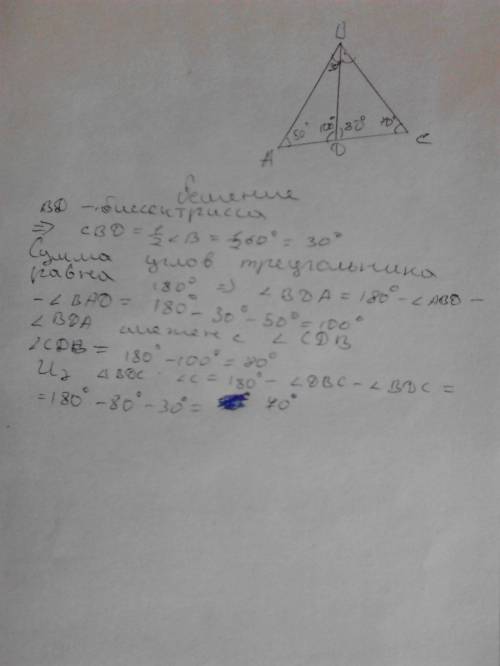 B
30°
50° 100° 80° 70°
A D C
Решение
BD - биссектрисса
=> CBD = 1/2 ∠B = 1/2 60° = 30°
Сумма углов треугольника
равна 180° => ∠BDA = 180° - ∠ABD -
- ∠BAD = 180° - 30° - 50° = 100°
∠BDA смежен с ∠CDB
∠CDB = 180° - 100° = 80°
Из ∆BDC ∠C = 180° - ∠DBC - ∠BDC =
= 180° - 80° - 30° = 70°